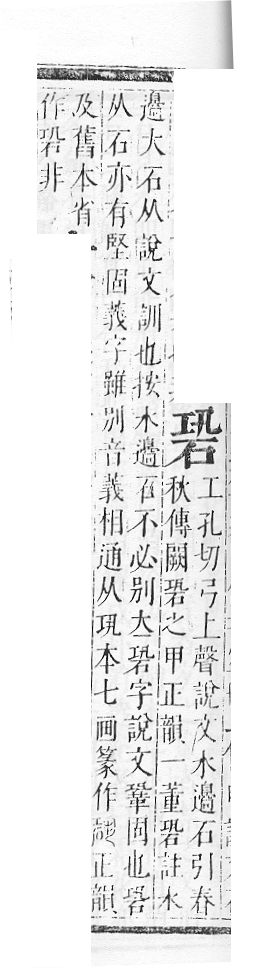 䂬
工孔切弓上聲說文水邊石引春
秋傳闕䂬之甲正韻一董䂬註水
邊大石从說文訓也按水邊石不必別立䂬字說文鞏固也䂬
从石亦有堅固義字雖別音義相通从巩本七画篆作正韻
及舊本省
作䂬非